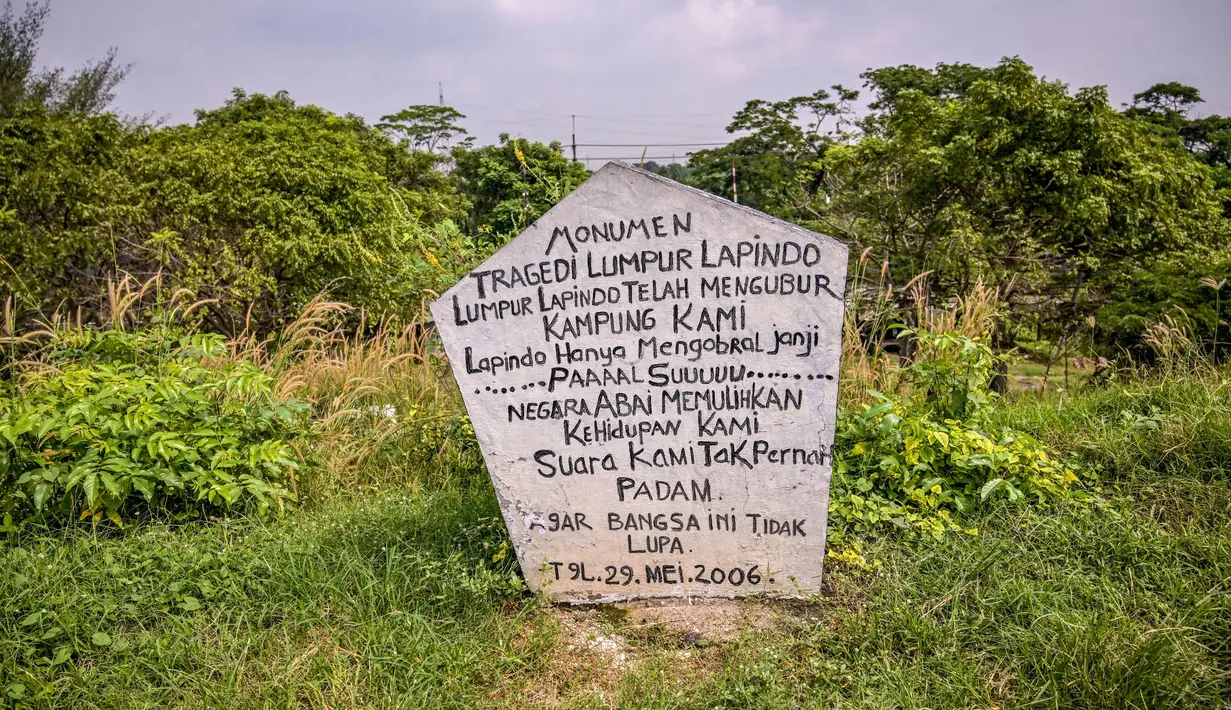 MONUMEN
TRAGEDI LUMPUR LAPINDO
LUMPUR LAPINDO TELAH MENGUBUR
KAMPUNG KAMI
Lapindo Hanya Mengobral janji
........PAAAAL SUUUUU.........
NEGARA ABAI MEMULIHKAN
KEHIDUPAN KAMI
SUARA KAMI TAK PERNAH
PADAM.
AGAR BANGSA INI TIDAK
LUPA.
T9L.29.MEI.2006.